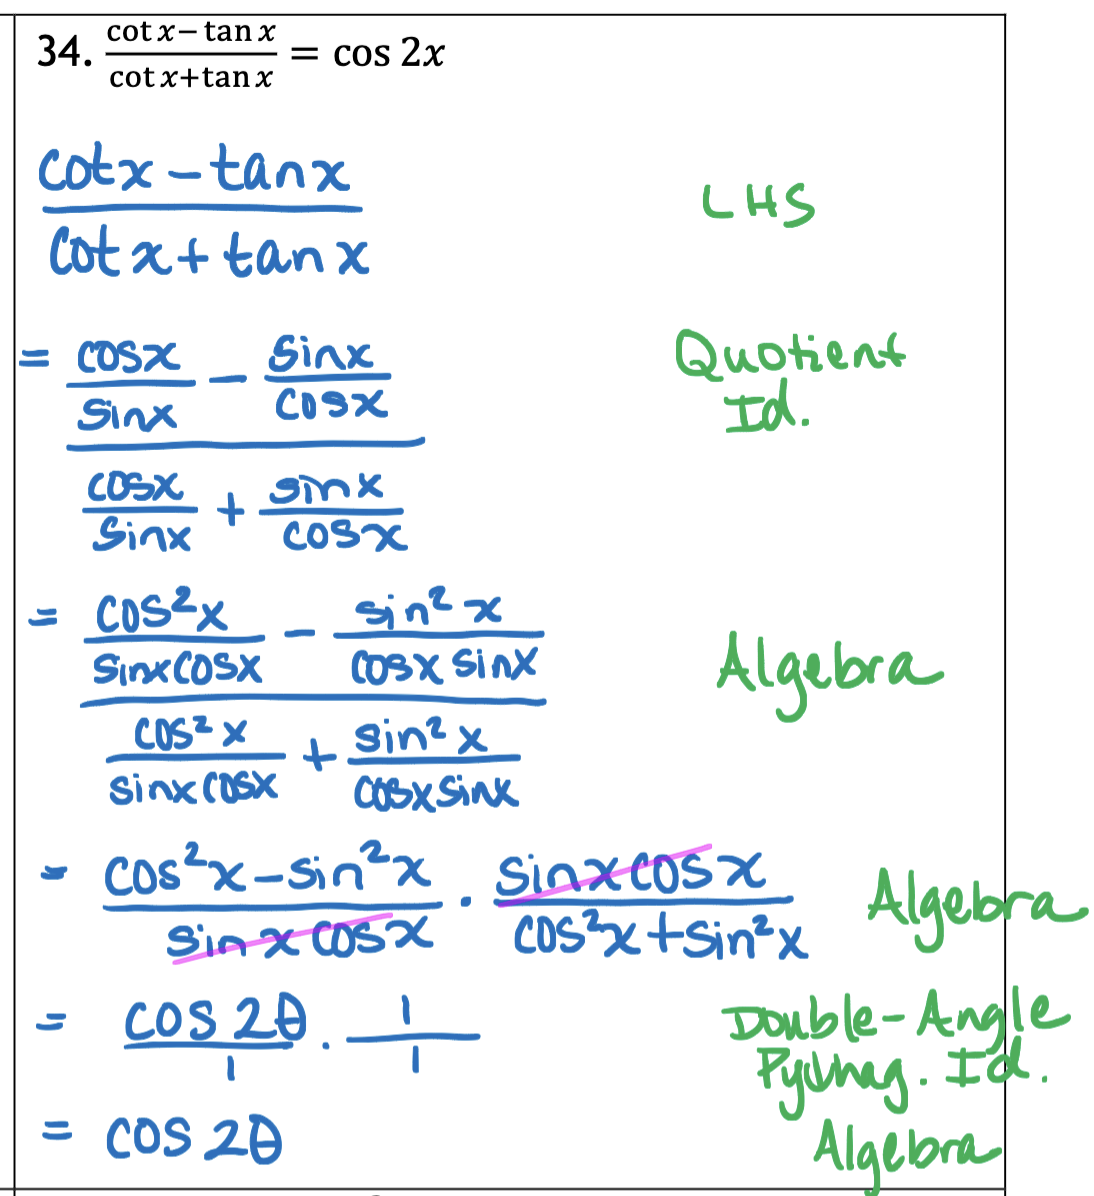 34. (cot x− tan x)/(cot x+tan x) = cos 2x
(cotx − tanx)/(cotx + tanx) LHS
= (cosx/sinx − sinx/cosx)/(cosx/sinx + sinx/cosx) Quotient Id.
= (cos²x/sinxcosx − sin²x/cosx sinx)/(cos²x/sinxcosx + sin²x/cosxsinx) Algebra
= (cos²x−sin²x)/(sinx cosx) · (sinxcosx)/(cos²x+sin²x) Algebra
= cos 2θ/1 · 1/1 Double-Angle
Pythag. Id.
= cos 2θ Algebra